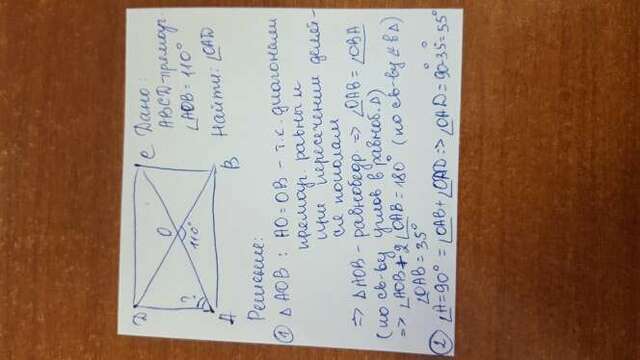 Дано:
ABCD-прямоуг.
∠AOB = 110°
Найти: ∠CAD
D
C
O
110°
?
A
B
Решение:
① ΔAOB: AO = OB - т.к. диагонали
прямоуг. равны и
при пересечении делят-
ся пополам
=> ΔAOB - равнобедр. => ∠OAB = ∠OBA
(по св-ву углов в равноб. Δ)
=> ∠AOB + 2∠OAB = 180° (по св-ву ∠ в Δ)
∠OAB = 35°
② ∠A = 90° = ∠OAB + ∠OAD => ∠OAD = 90°-35° = 55°